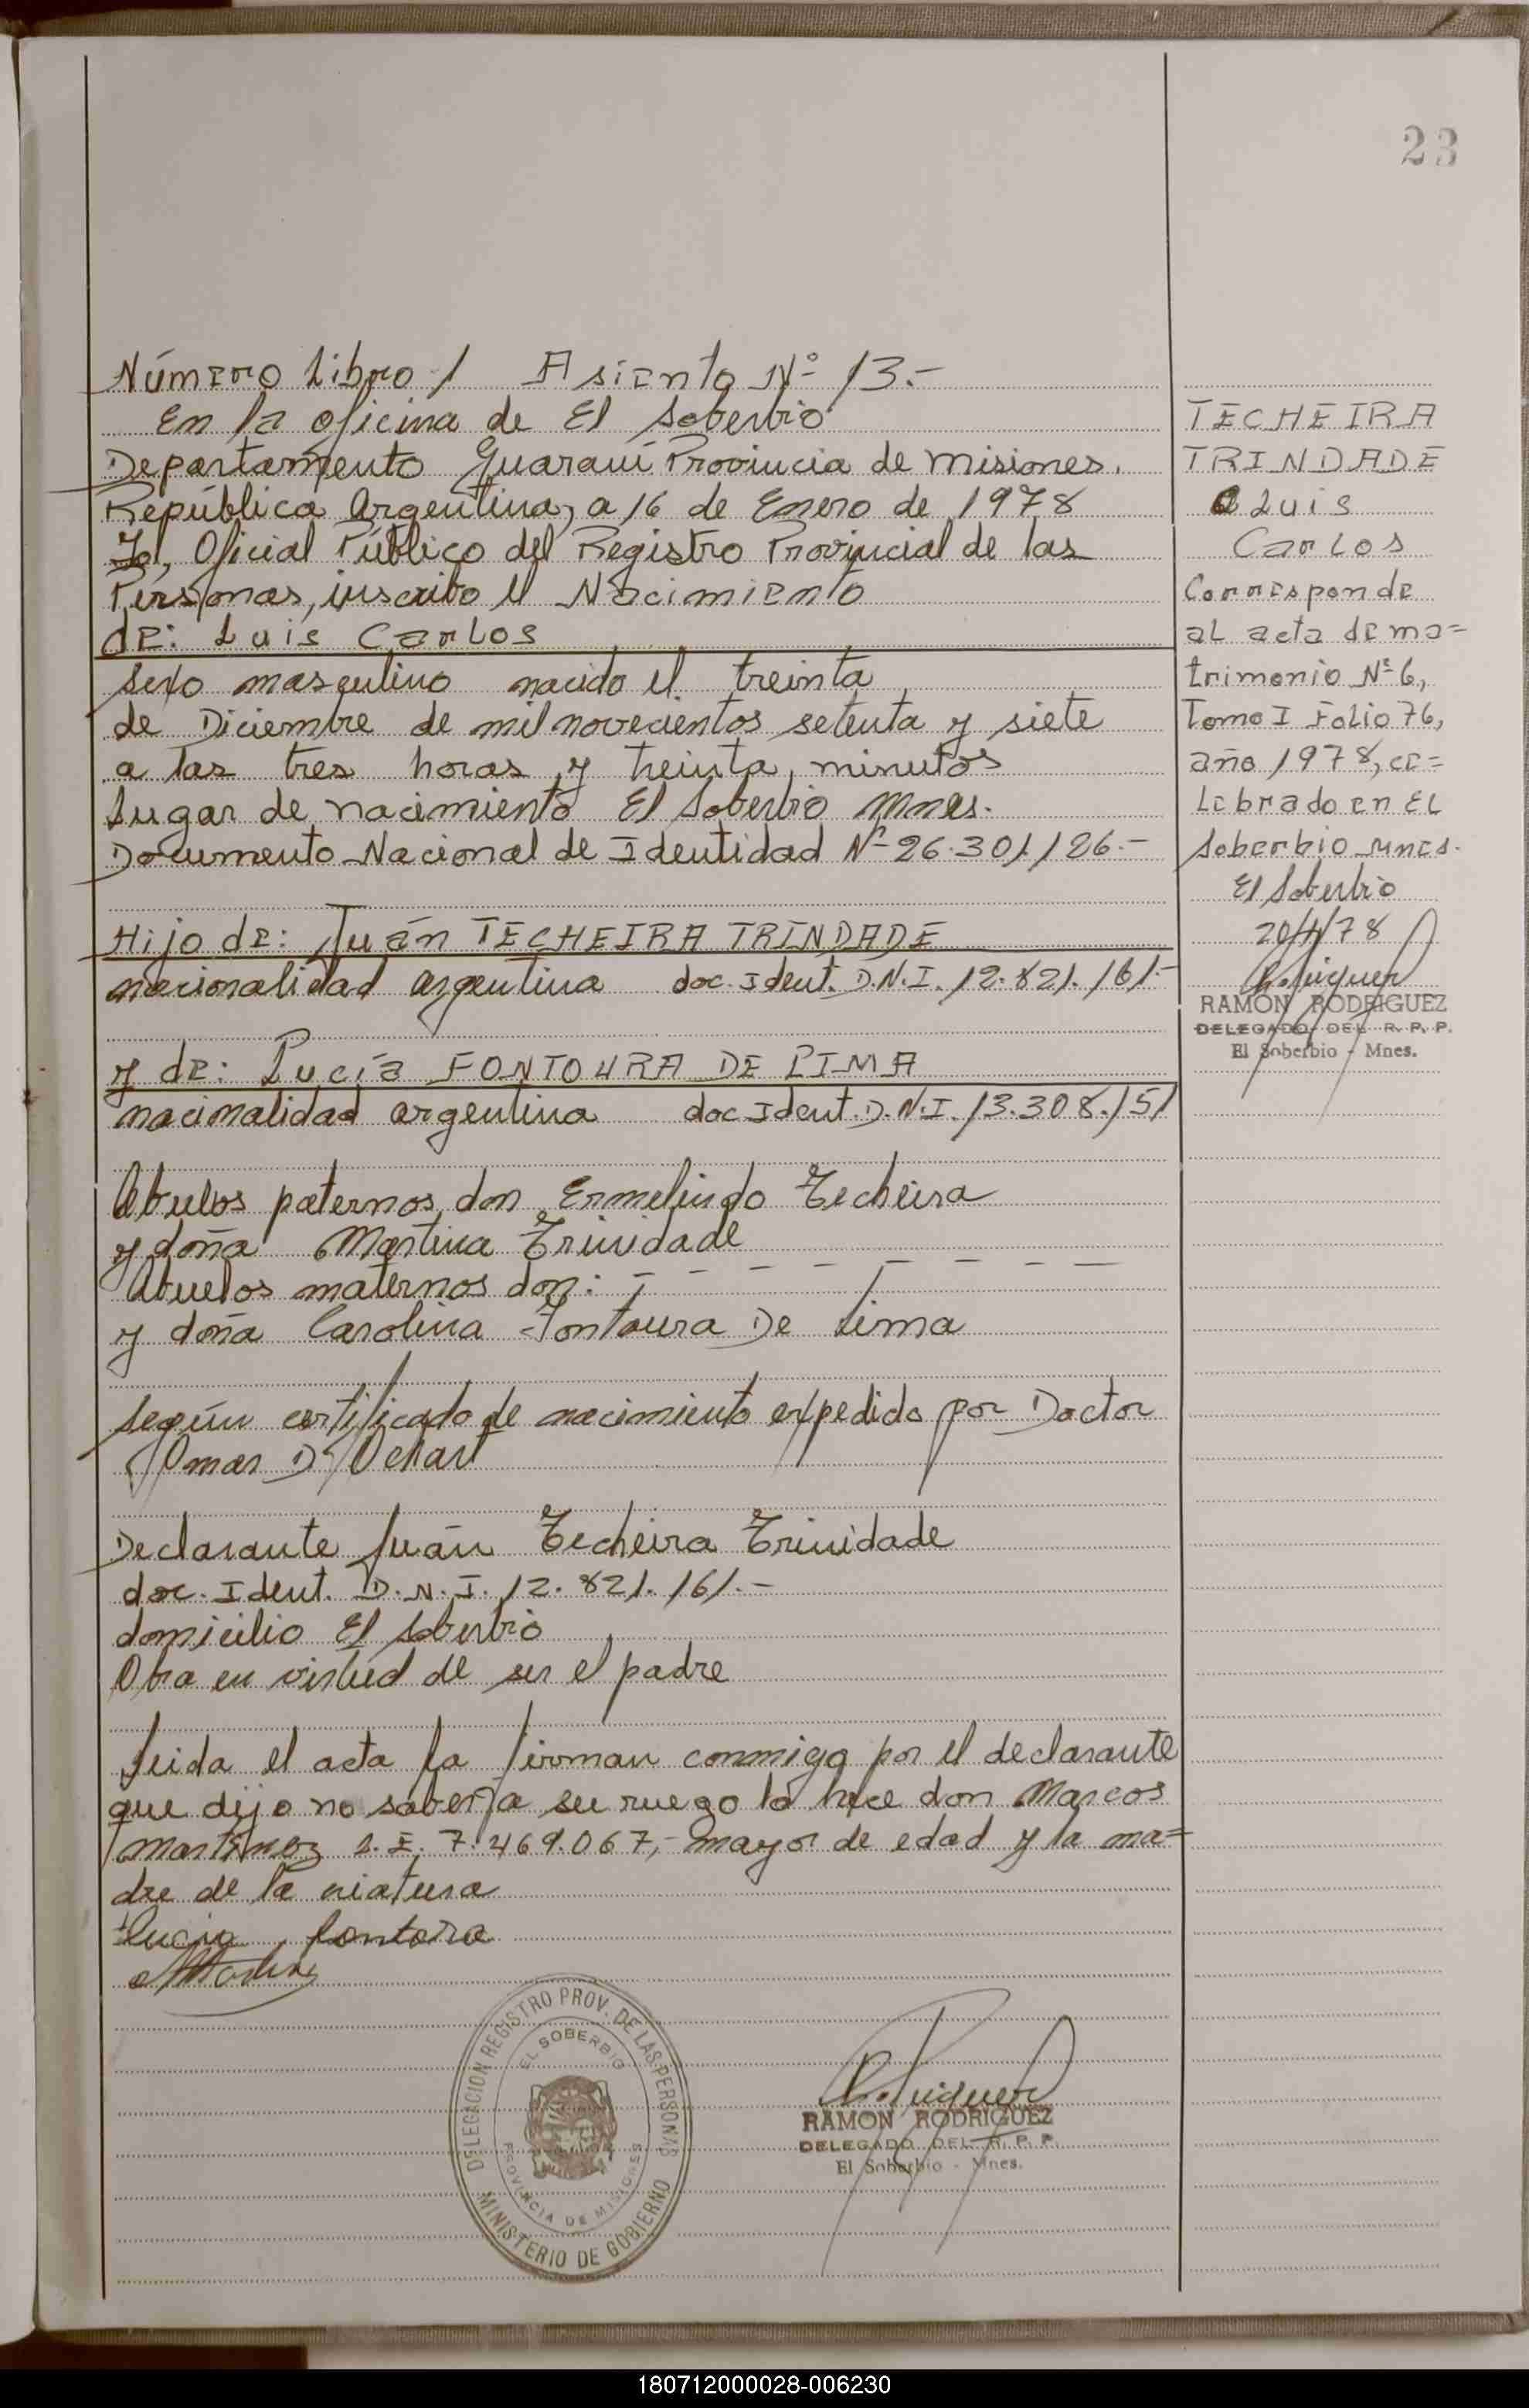 23
Número Libro 1 Asiento Nº 13.-
En la oficina de El Soberbio
Departamento Guaraní Provincia de Misiones.
República Argentina, a 16 de Enero de 1978
Yo, Oficial Público del Registro Provincial de las
Personas, inscribo el Nacimiento
de: Luis Carlos
sexo masculino nacido el treinta
de Diciembre de mil novecientos setenta y siete
a las tres horas y treinta minutos
Lugar de nacimiento El Soberbio Mnes.
Documento Nacional de Identidad Nº 26.301.126.-
Hijo de: Juán TECHEIRA TRINDADE
nacionalidad argentina doc. Ident. D.N.I. 12.821.161.-
y de: Lucía FONTOURA DE LIMA
nacionalidad argentina doc Ident. D.N.I. 13.308.151
Abuelos paternos don Ermelindo Techeira
y doña Martina Trinidade
Abuelos maternos don: - - - - - - - -
y doña Carolina Fontoura De Lima
según certificado de nacimiento expedido por Doctor
Omar D.
Declarante Juán Techeira Trinidade
doc. Ident. D.N.I. 12.821.161.-
domicilio El Soberbio
Obra en virtud de ser el padre
Leida el acta la firman conmigo por el declarante
que dijo no saber a su ruego lo hace don Marcos
Martinez L.E. 7.469.067,- mayor de edad y la ma=
dre de la criatura
Lucia fontora
TECHEIRA
TRINDADE
Luis
Carlos
Corresponde
al acta de ma=
trimonio Nº 6,
Tomo I Folio 76,
año 1978, ce=
lebrado en El
Soberbio Mnes.
El Soberbio
20/4/78
RAMON RODRIGUEZ
DELEGADO DEL R. P. P.
El Soberbio - Mnes.
DELEGACION REGISTRO PROV. DE LAS PERSONAS
EL SOBERBIO
PROVINCIA DE MISIONES
MINISTERIO DE GOBIERNO
RAMON RODRIGUEZ
DELEGADO DEL R. P. P.
El Soberbio - Mnes.
180712000028-006230